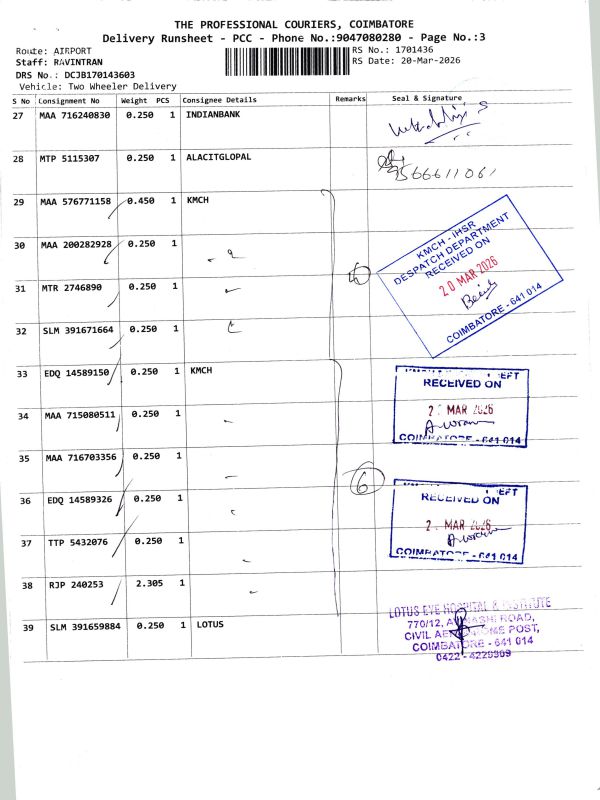 THE PROFESSIONAL COURIERS, COIMBATORE
Delivery Runsheet - PCC - Phone No.:9047080280 - Page No.:3
Route: AIRPORT RS No.: 1701436
Staff: RAVINTRAN RS Date: 20-Mar-2026
DRS No.: DCJB170143603
Vehicle: Two Wheeler Delivery
S No Consignment No Weight PCS Consignee Details Remarks Seal & Signature
27 MAA 716240830 0.250 1 INDIANBANK
28 MTP 5115307 0.250 1 ALACITGLOPAL 9566611061
29 MAA 576771158 0.450 1 KMCH
30 MAA 200282928 0.250 1
31 MTR 2746890 0.250 1
32 SLM 391671664 0.250 1
KMCH - IHSR
DESPATCH DEPARTMENT
RECEIVED ON
20 MAR 2026
COIMBATORE - 641 014
33 EDQ 14589150 0.250 1 KMCH
34 MAA 715080511 0.250 1
35 MAA 716703356 0.250 1
36 EDQ 14589326 0.250 1
37 TTP 5432076 0.250 1
38 RJP 240253 2.305 1
6
RECEIVED ON
MAR 2026
COIMBATORE - 641 014
RECEIVED ON
MAR 2026
COIMBATORE - 641 014
39 SLM 391659884 0.250 1 LOTUS
LOTUS EYE HOSPITAL & INSTITUTE
770/12, AVINASHI ROAD,
CIVIL AERODROME POST,
COIMBATORE - 641 014
0422 - 4229309